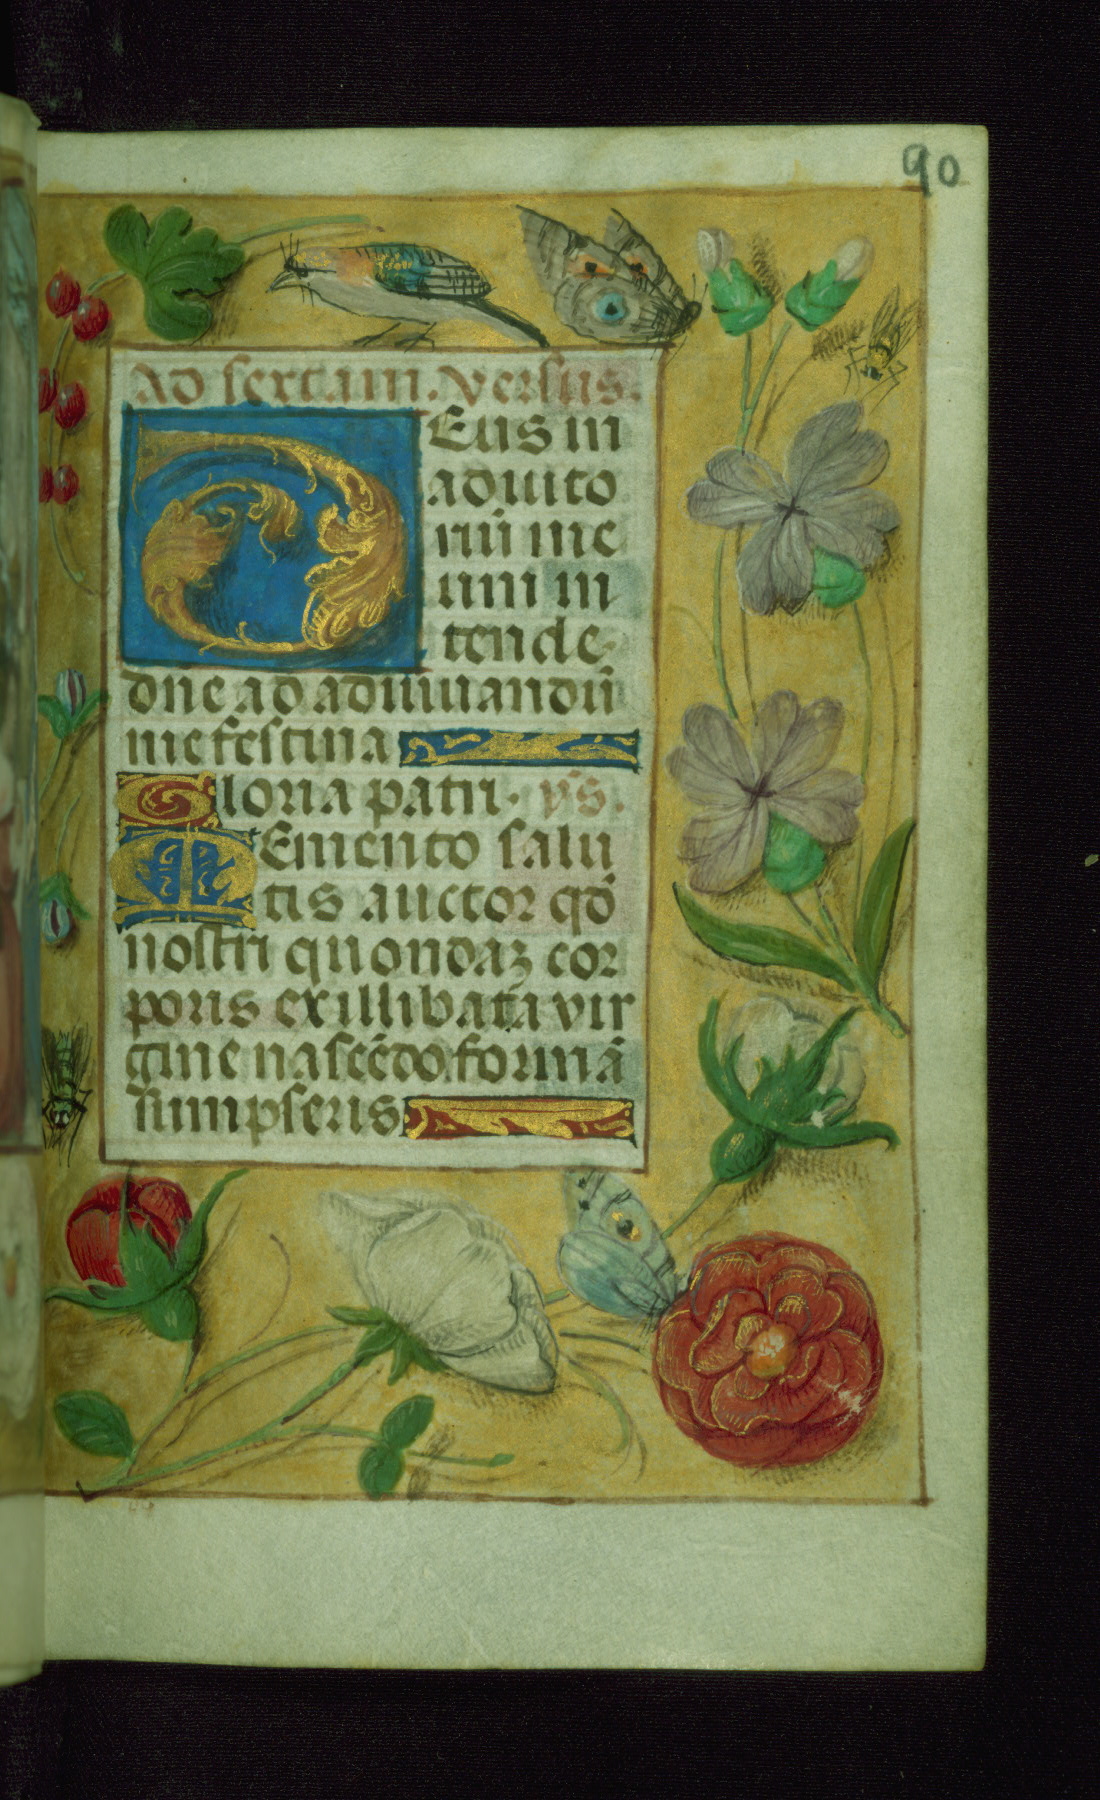 90
Ad sextam. versus.
DEus in
adiuto
riū me
um in
tende
dn̄e ad adiuuandū
me festina
Gloria patri. v̄s.
MEmento salu
tis auctor qd̄
nostri quondaʒ cor
poris ex illibata vir
gine nascēdo formā
sumpseris